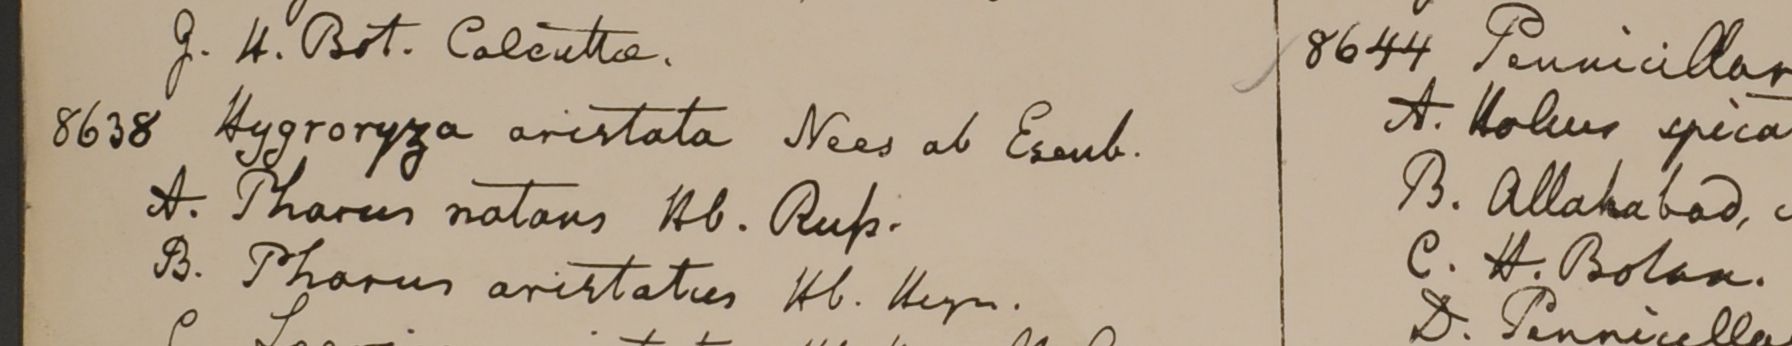 G. H. Bot. Calcutta.
8638 Hygroryza aristata Nees ab Esenb.
A. Pharus natans Hb. Rus.
B. Pharus aristatus Hb. Heyn.
8644
A. Holcus
B. Allahabad,
C. H. Botan.
D.